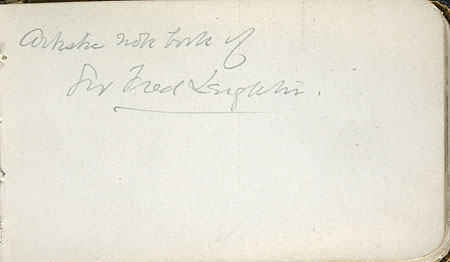 Artistic note book of
Sir Fred Leighton.